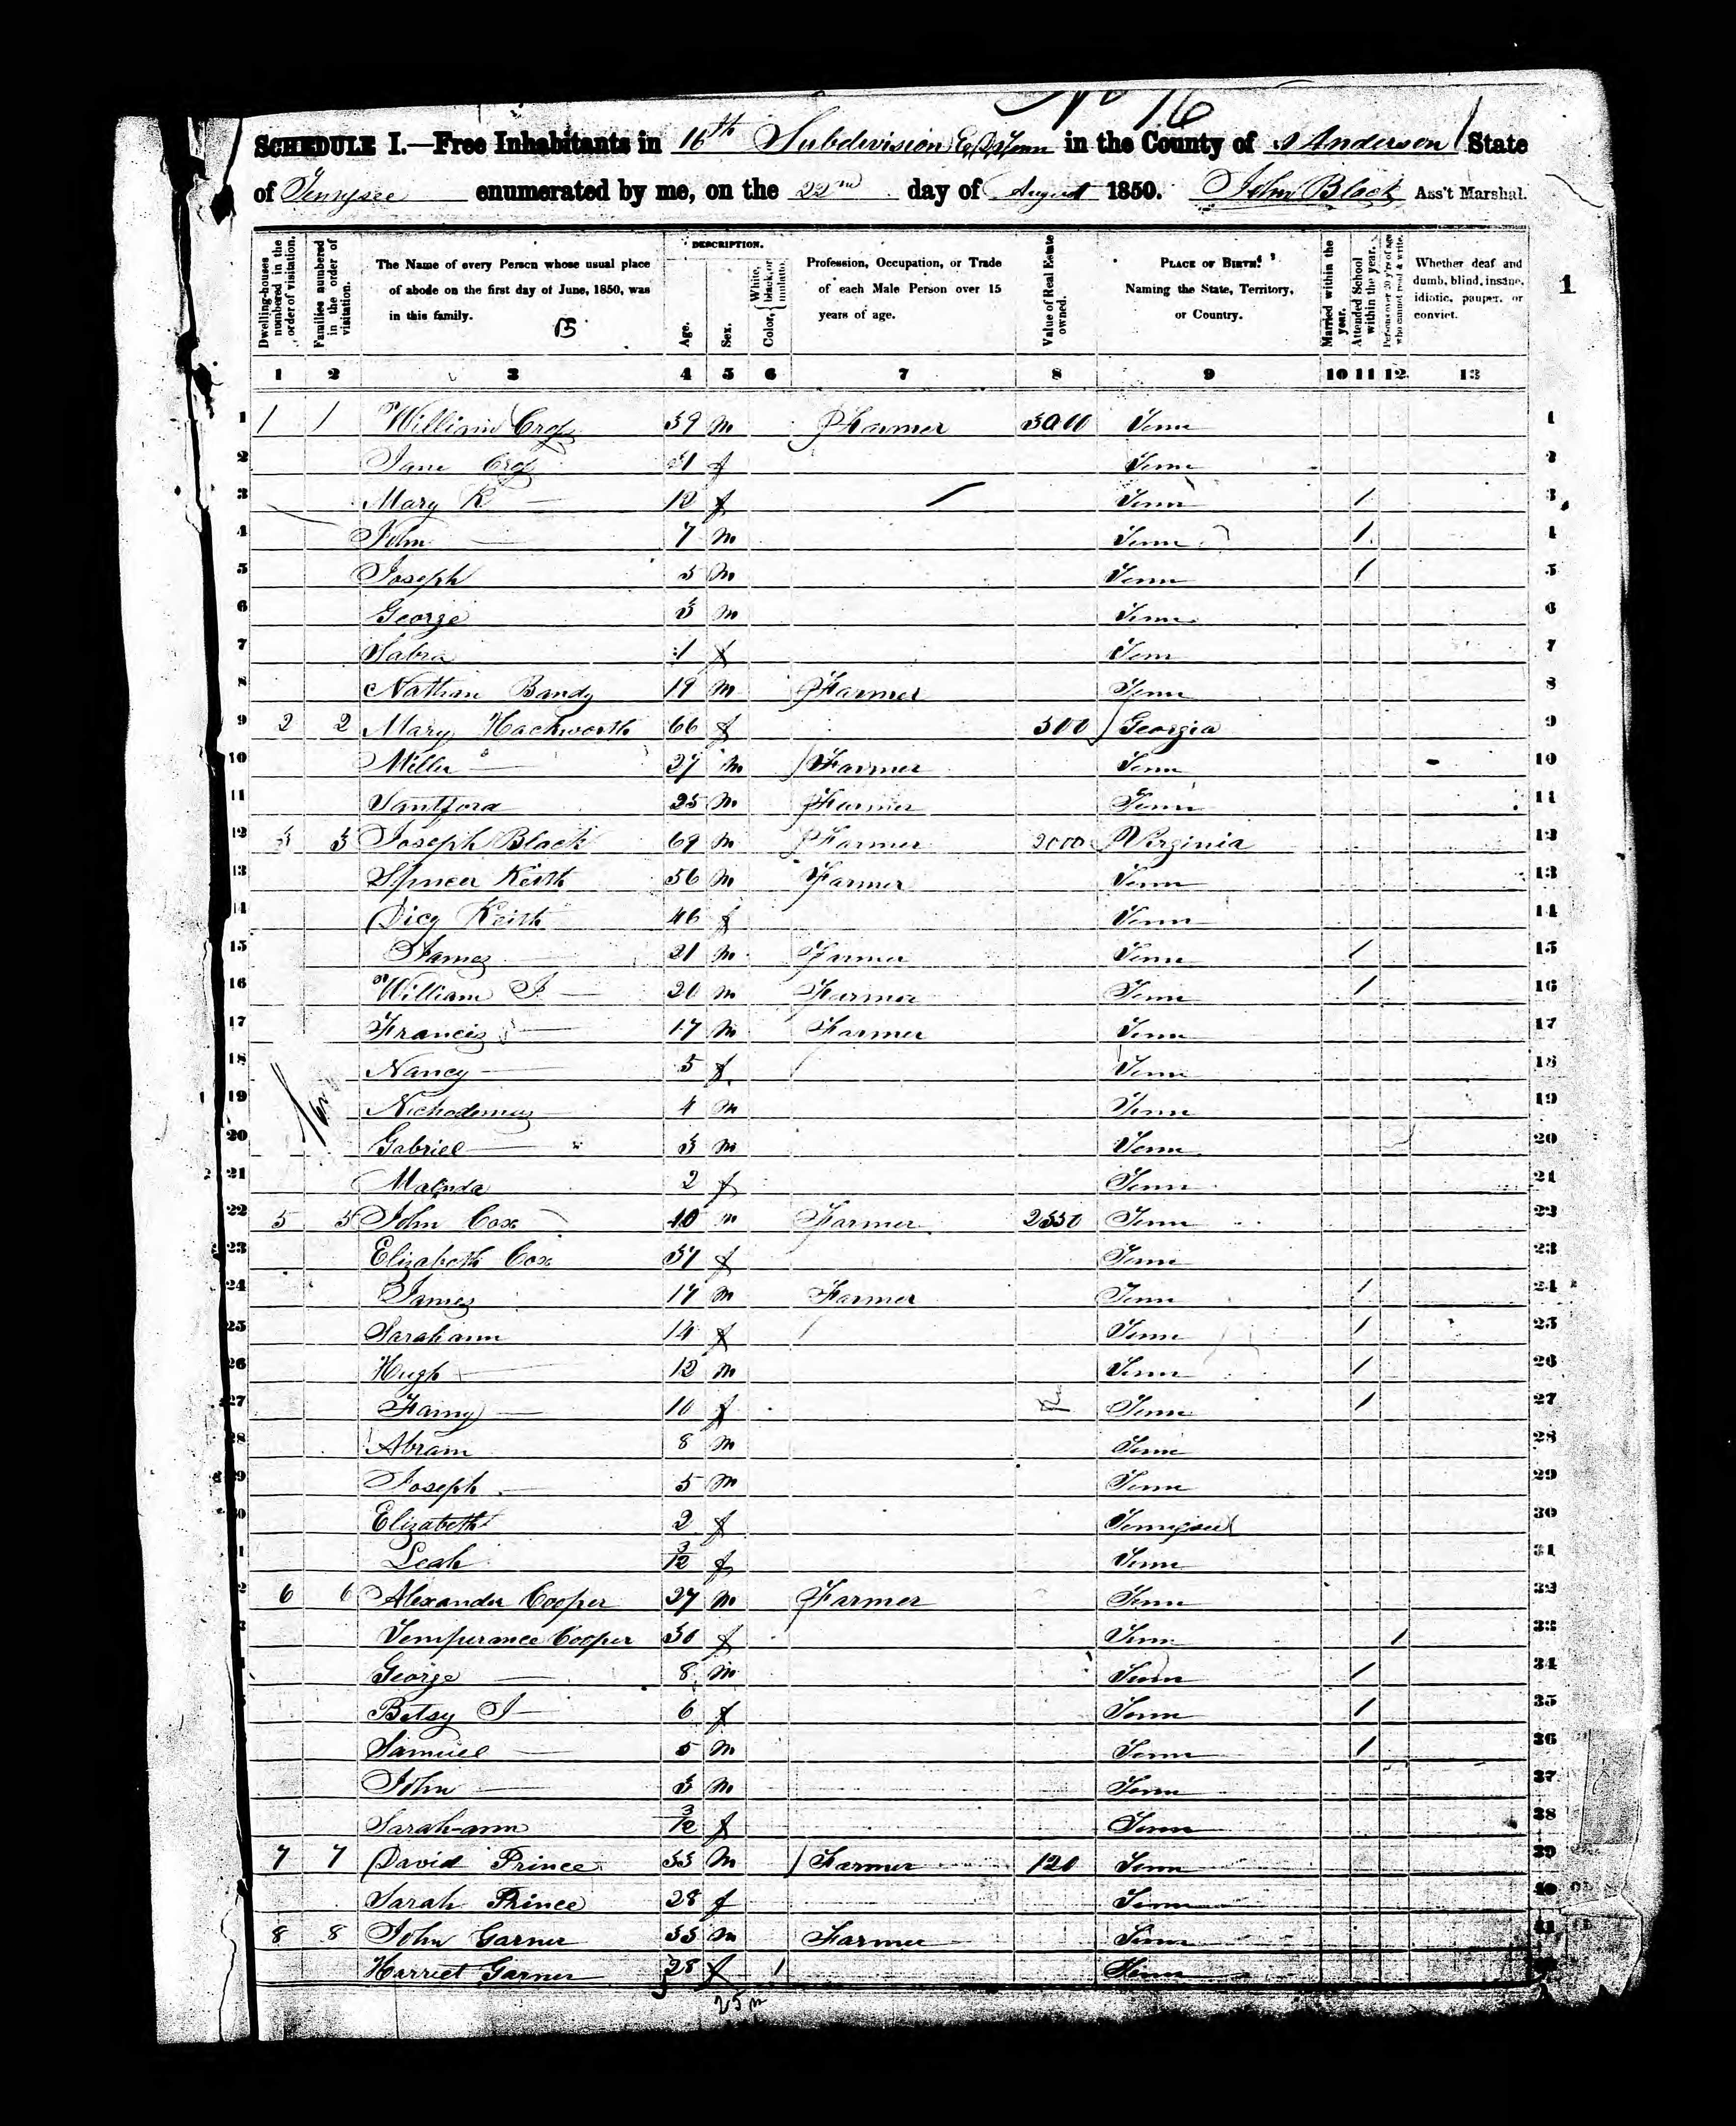 No 16
SCHEDULE I.—Free Inhabitants in 16th Subdivision E. D. Tenn in the County of Anderson State
of Tennysee enumerated by me, on the 22nd day of August 1850. John Black Ass't Marshal.
Dwelling-houses numbered in the order of visitation.
Families numbered in the order of visitation.
The Name of every Person whose usual place of abode on the first day of June, 1850, was in this family.
DESCRIPTION.
Age.
Sex.
Color, White, black, or mulatto.
Profession, Occupation, or Trade of each Male Person over 15 years of age.
Value of Real Estate owned.
PLACE OF BIRTH. Naming the State, Territory, or Country.
Married within the year.
Attended School within the year.
Persons over 20 y'rs of age who cannot read & write.
Whether deaf and dumb, blind, insane, idiotic, pauper, or convict.
1
1 2 3 4 5 6 7 8 9 10 11 12 13
1 1 1 William 39 m Farmer 3000 Tenn 1
2 Jane f Tenn 2
3 Mary R 12 f Tenn 1 3
4 John 7 m Tenn 1 4
5 Joseph 5 m Tenn 1 5
6 George 3 m Tenn 6
7 Sabra 1 f Tenn 7
8 Nathan Bandy 19 m Farmer Tenn 8
9 2 2 Mary Hackworth 66 f 500 Georgia 9
10 Miller 27 m Farmer Tenn 10
11 Santford 25 m Farmer Tenn 11
12 3 3 Joseph Black 69 m Farmer 2000 Virginia 12
13 Spencer Keith 56 m Farmer Tenn 13
14 Dicy Keith 46 f Tenn 14
15 James 21 m Farmer Tenn 1 15
16 William J 20 m Farmer Tenn 1 16
17 Francis 17 m Farmer Tenn 17
18 Nancy 5 f Tenn 18
19 Nichodemus 4 m Tenn 19
20 Gabriel 3 m Tenn 20
21 Malinda 2 f Tenn 21
22 5 5 John Cox 40 m Farmer 2550 Tenn 22
23 Elizabeth Cox 37 f Tenn 23
24 James 17 m Farmer Tenn 1 24
25 Sarah ann 14 f Tenn 1 25
26 Hugh 12 m Tenn 1 26
27 Famy 10 f Tenn 1 27
28 Abram 8 m Tenn 28
29 Joseph 5 m Tenn 29
30 Elizabeth 2 f Tennysee 30
31 Leah 3/12 f Tenn 31
6 6 Alexander Cooper 27 m Farmer Tenn 32
Temperance Cooper 30 f Tenn 1 33
George 8 m Tenn 1 34
Betsy J 6 f Tenn 1 35
Samuel 5 m Tenn 1 36
John 3 m Tenn 37
Sarah-ann 3/12 f Tenn 38
7 7 David Prince 33 m Farmer 120 Tenn 39
Sarah Prince 28 f Tenn 40
8 8 John Garner 33 m Farmer Tenn 41
Harriet Garner 28 f 1 Tenn
25 m